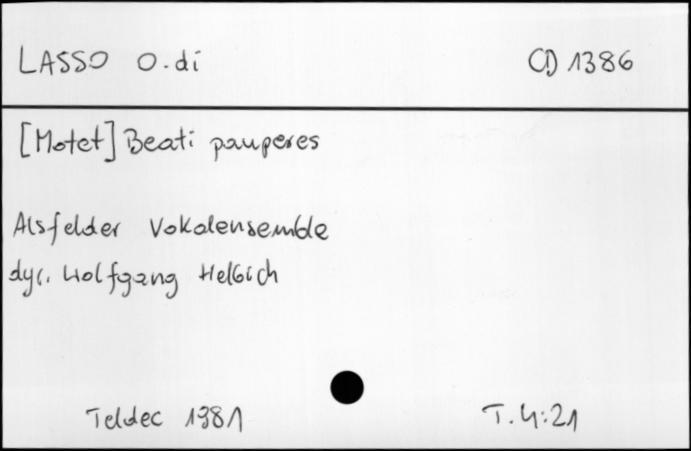 LASSO O.di CD 1386
[Motet] Beati pauperes
Alsfelder Vokalensemble
dyr. Wolfgang Helbich
Teldec 1981 T. 4:21